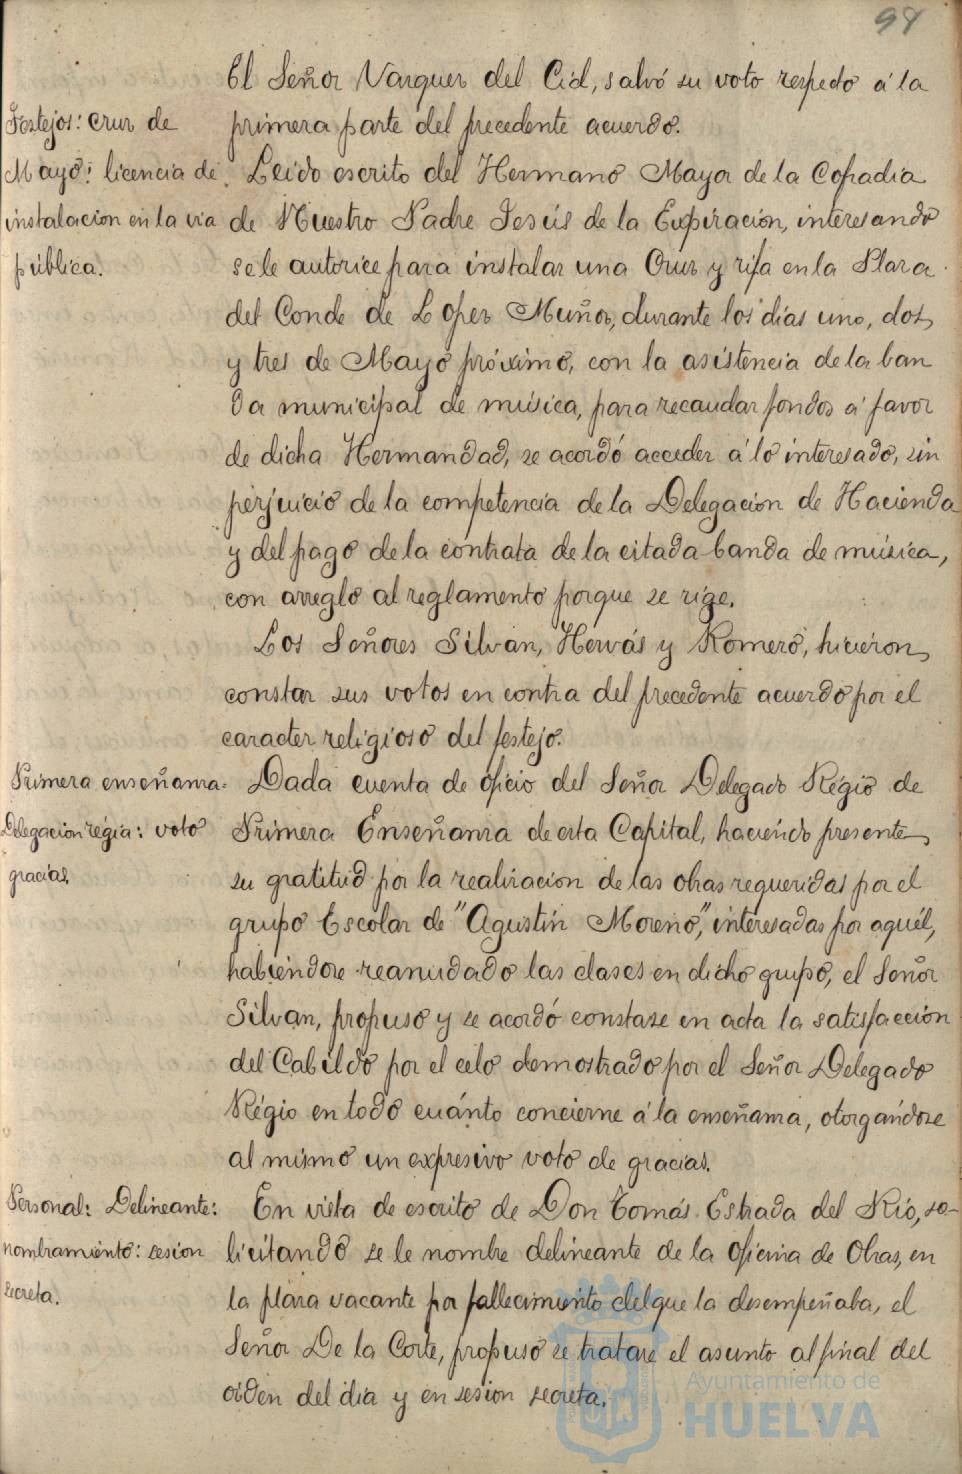 98
El Señor Vazquez del Cid, salvó su voto respecto á la
primera parte del precedente acuerdo.
Festejos: Cruz de
Mayo: licencia de
instalacion en la via
pública.
Leido escrito del Hermano Mayor de la Cofradia
de Nuestro Padre Jesús de la Expiración, interesando
se le autorice para instalar una Cruz y rifa en la Plaza
del Conde de Lopez Muñoz, durante los días uno, dos
y tres de Mayo próximo, con la asistencia de la ban
da municipal de música, para recaudar fondos á favor
de dicha Hermandad, se acordó acceder á lo interesado, sin
perjuicio de la competencia de la Delegación de Hacienda
y del pago de la contrata de la citada banda de música,
con arreglo al reglamento porque se rige.
Los Señores Silvan, Hervás y Romero, hicieron
constar sus votos en contra del precedente acuerdo por el
caracter religioso del festejo.
Primera enseñanza=
Delegacion régia: voto
gracias.
Dada cuenta de oficio del Señor Delegado Régio de
Primera Enseñanza de esta Capital, haciendo presente
su gratitud por la realizacion de las obras requeridas por el
grupo Escolar de "Agustín Moreno," interesadas por aquél,
habiendose reanudado las clases en dicho grupo, el Señor
Silvan, propuso y se acordó constase en acta la satisfaccion
del Cabildo por el celo demostrado por el Señor Delegado
Régio en todo cuánto concierne á la enseñanza, otorgándose
al mismo un expresivo voto de gracias.
Personal: Delineante:
nombramiento: sesion
secreta.
En vista de escrito de Don Tomás Estrada del Rio, so-
licitando se le nombre delineante de la oficina de Obras, en
la plaza vacante por fallecimiento del que la desempeñaba, el
Señor De la Corte, propuso se tratase el asunto al final del
orden del dia y en sesion secreta.
Ayuntamiento de
HUELVA